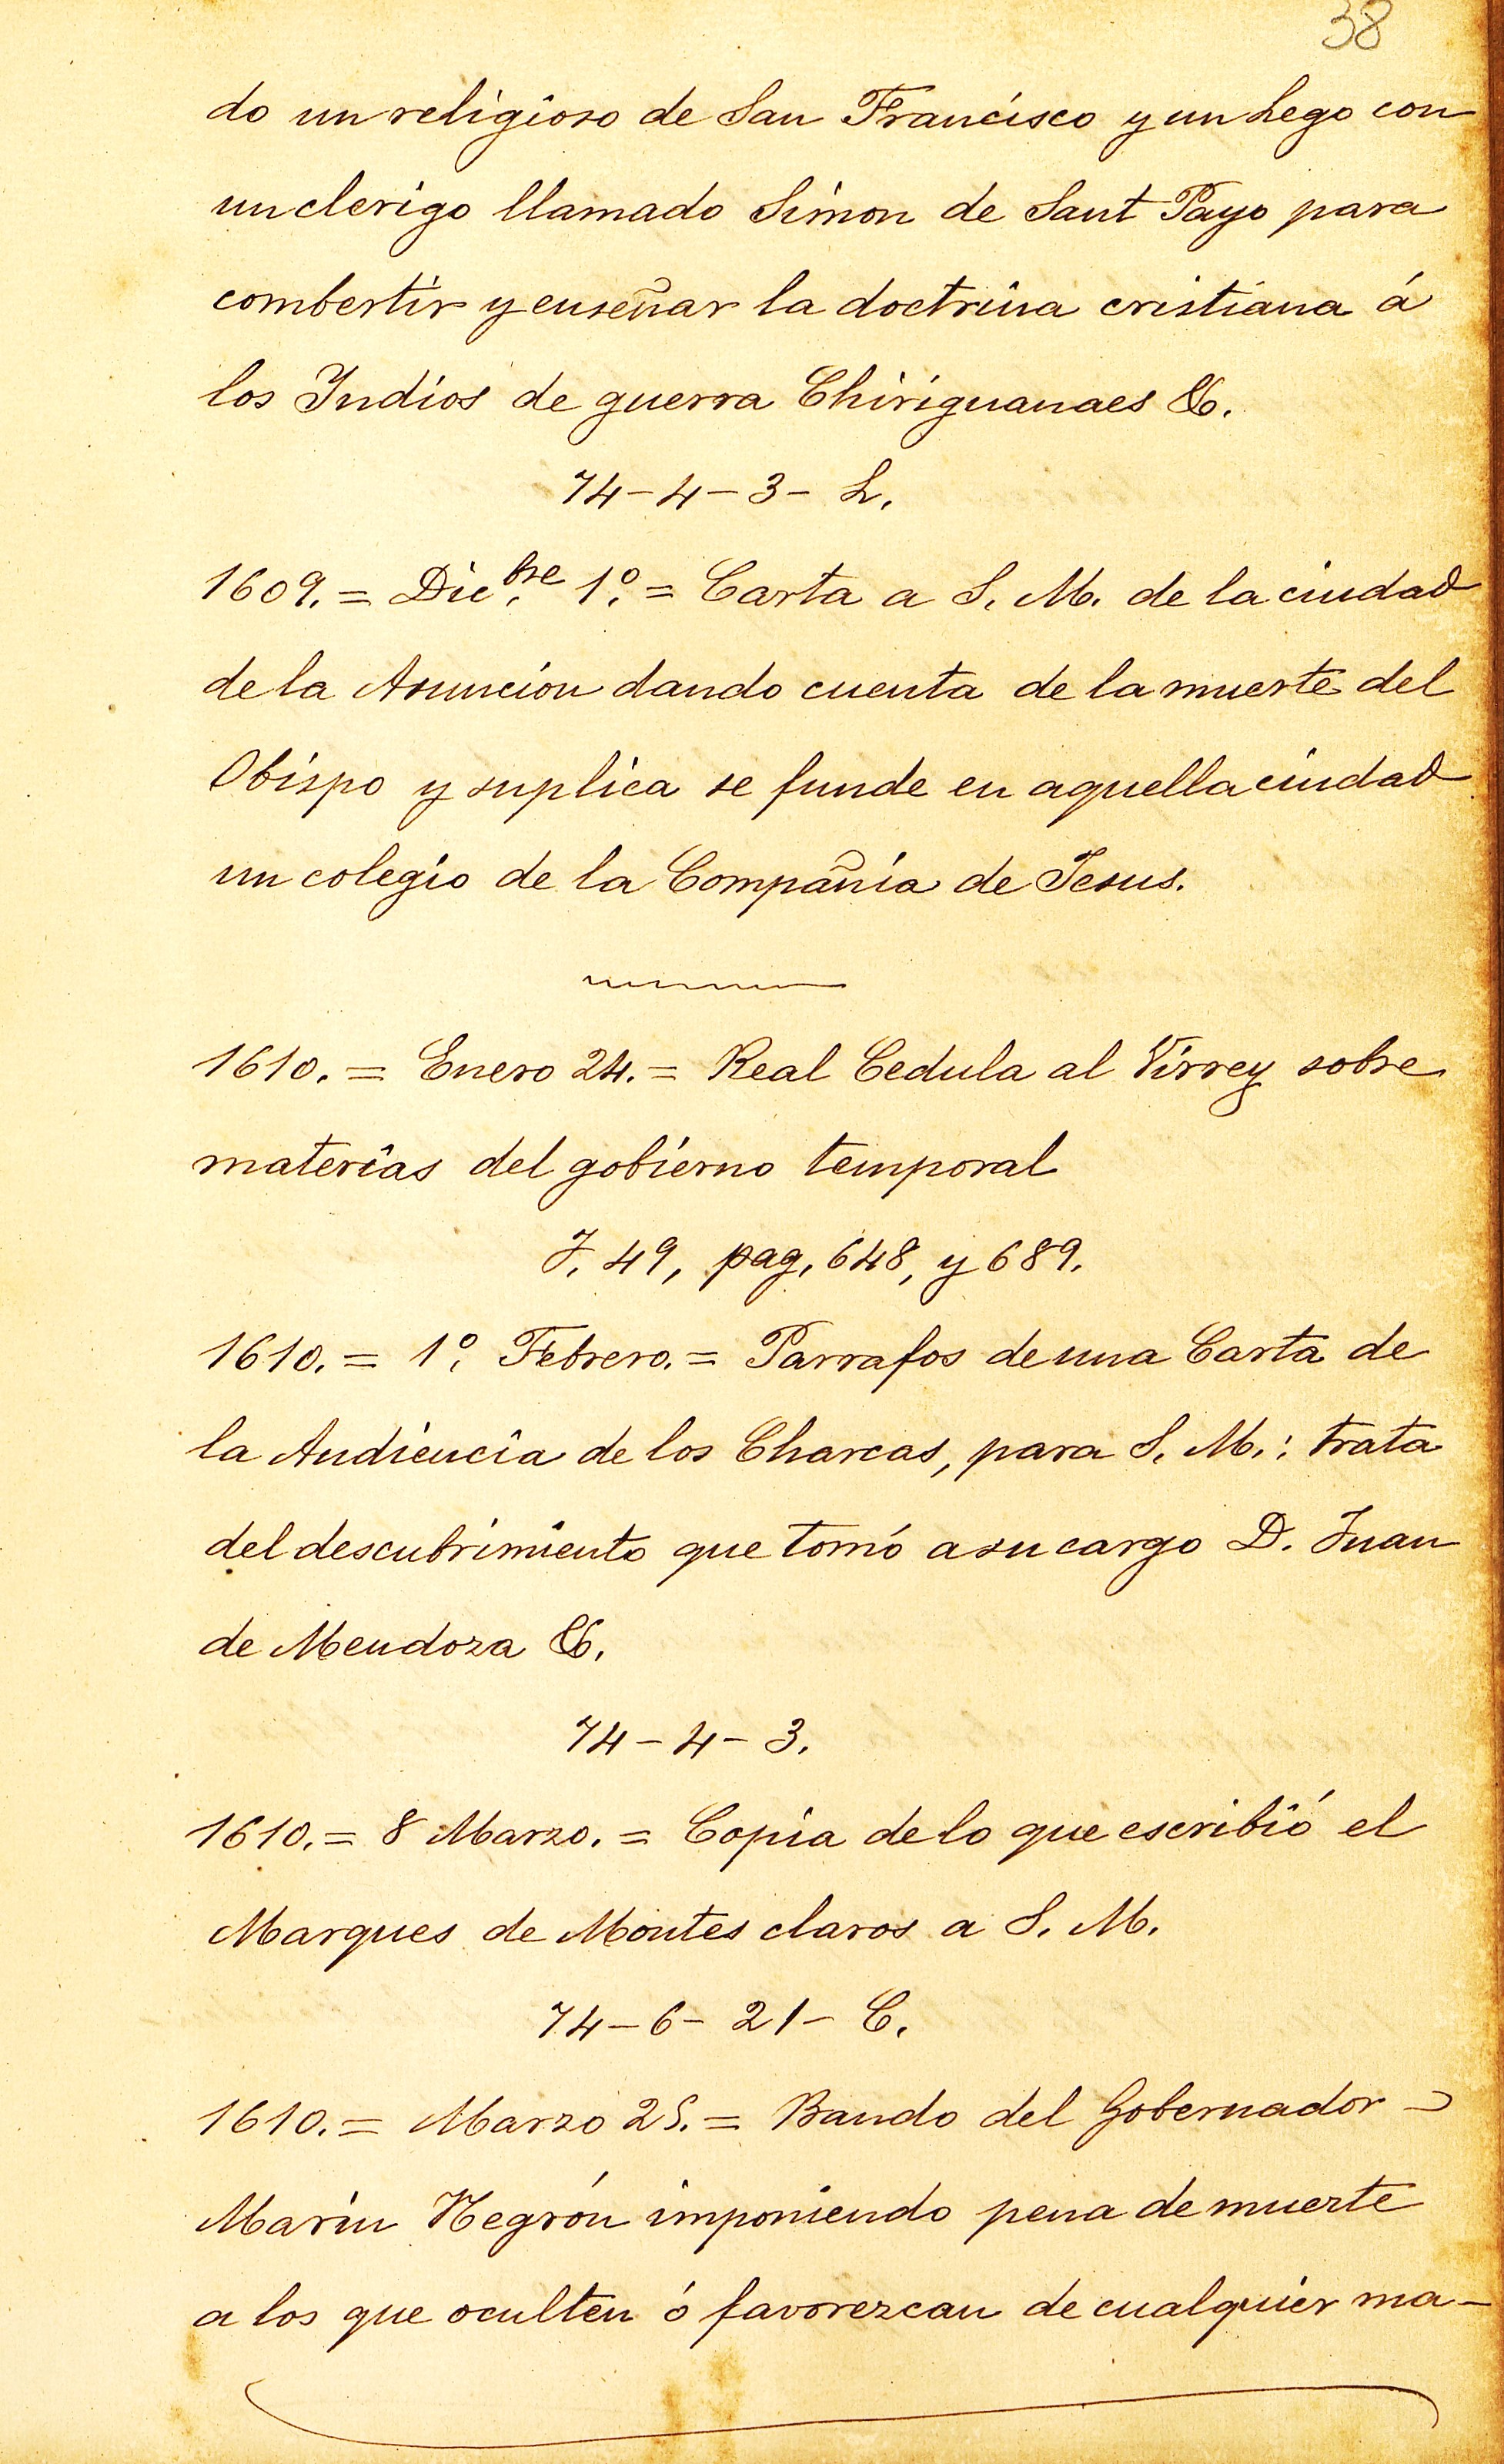 38
do un religioso de San Francisco y un Lego con
un clerigo llamado Simon de Sant Payo para
combertir y enseñar la doctrina cristiana á
los Indios de guerra Chiriguanaes &.
74-4-3- L.
1609.= Dic.bre 1º.= Carta a S. M. de la ciudad
de la Asuncion dando cuenta de la muerte del
Obispo y suplica se funde en aquella ciudad
un colegio de la Compañia de Jesus.
1610.= Enero 24.= Real Cedula al Virrey sobre
materias del gobierno temporal
T. 49, pag. 648, y 689.
1610.= 1º. Febrero.= Parrafos de una Carta de
la Audiencia de los Charcas, para S. M.: trata
del descubrimiento que tomó a su cargo D. Juan
de Mendoza &.
74-4-3.
1610.= 8 Marzo.= Copia de lo que escribió el
Marques de Montes claros a S. M.
74-6-21- C.
1610.= Marzo 25.= Bando del Gobernador -
Marin Negrón imponiendo pena de muerte
a los que oculten ó favorezcan de cualquier ma-